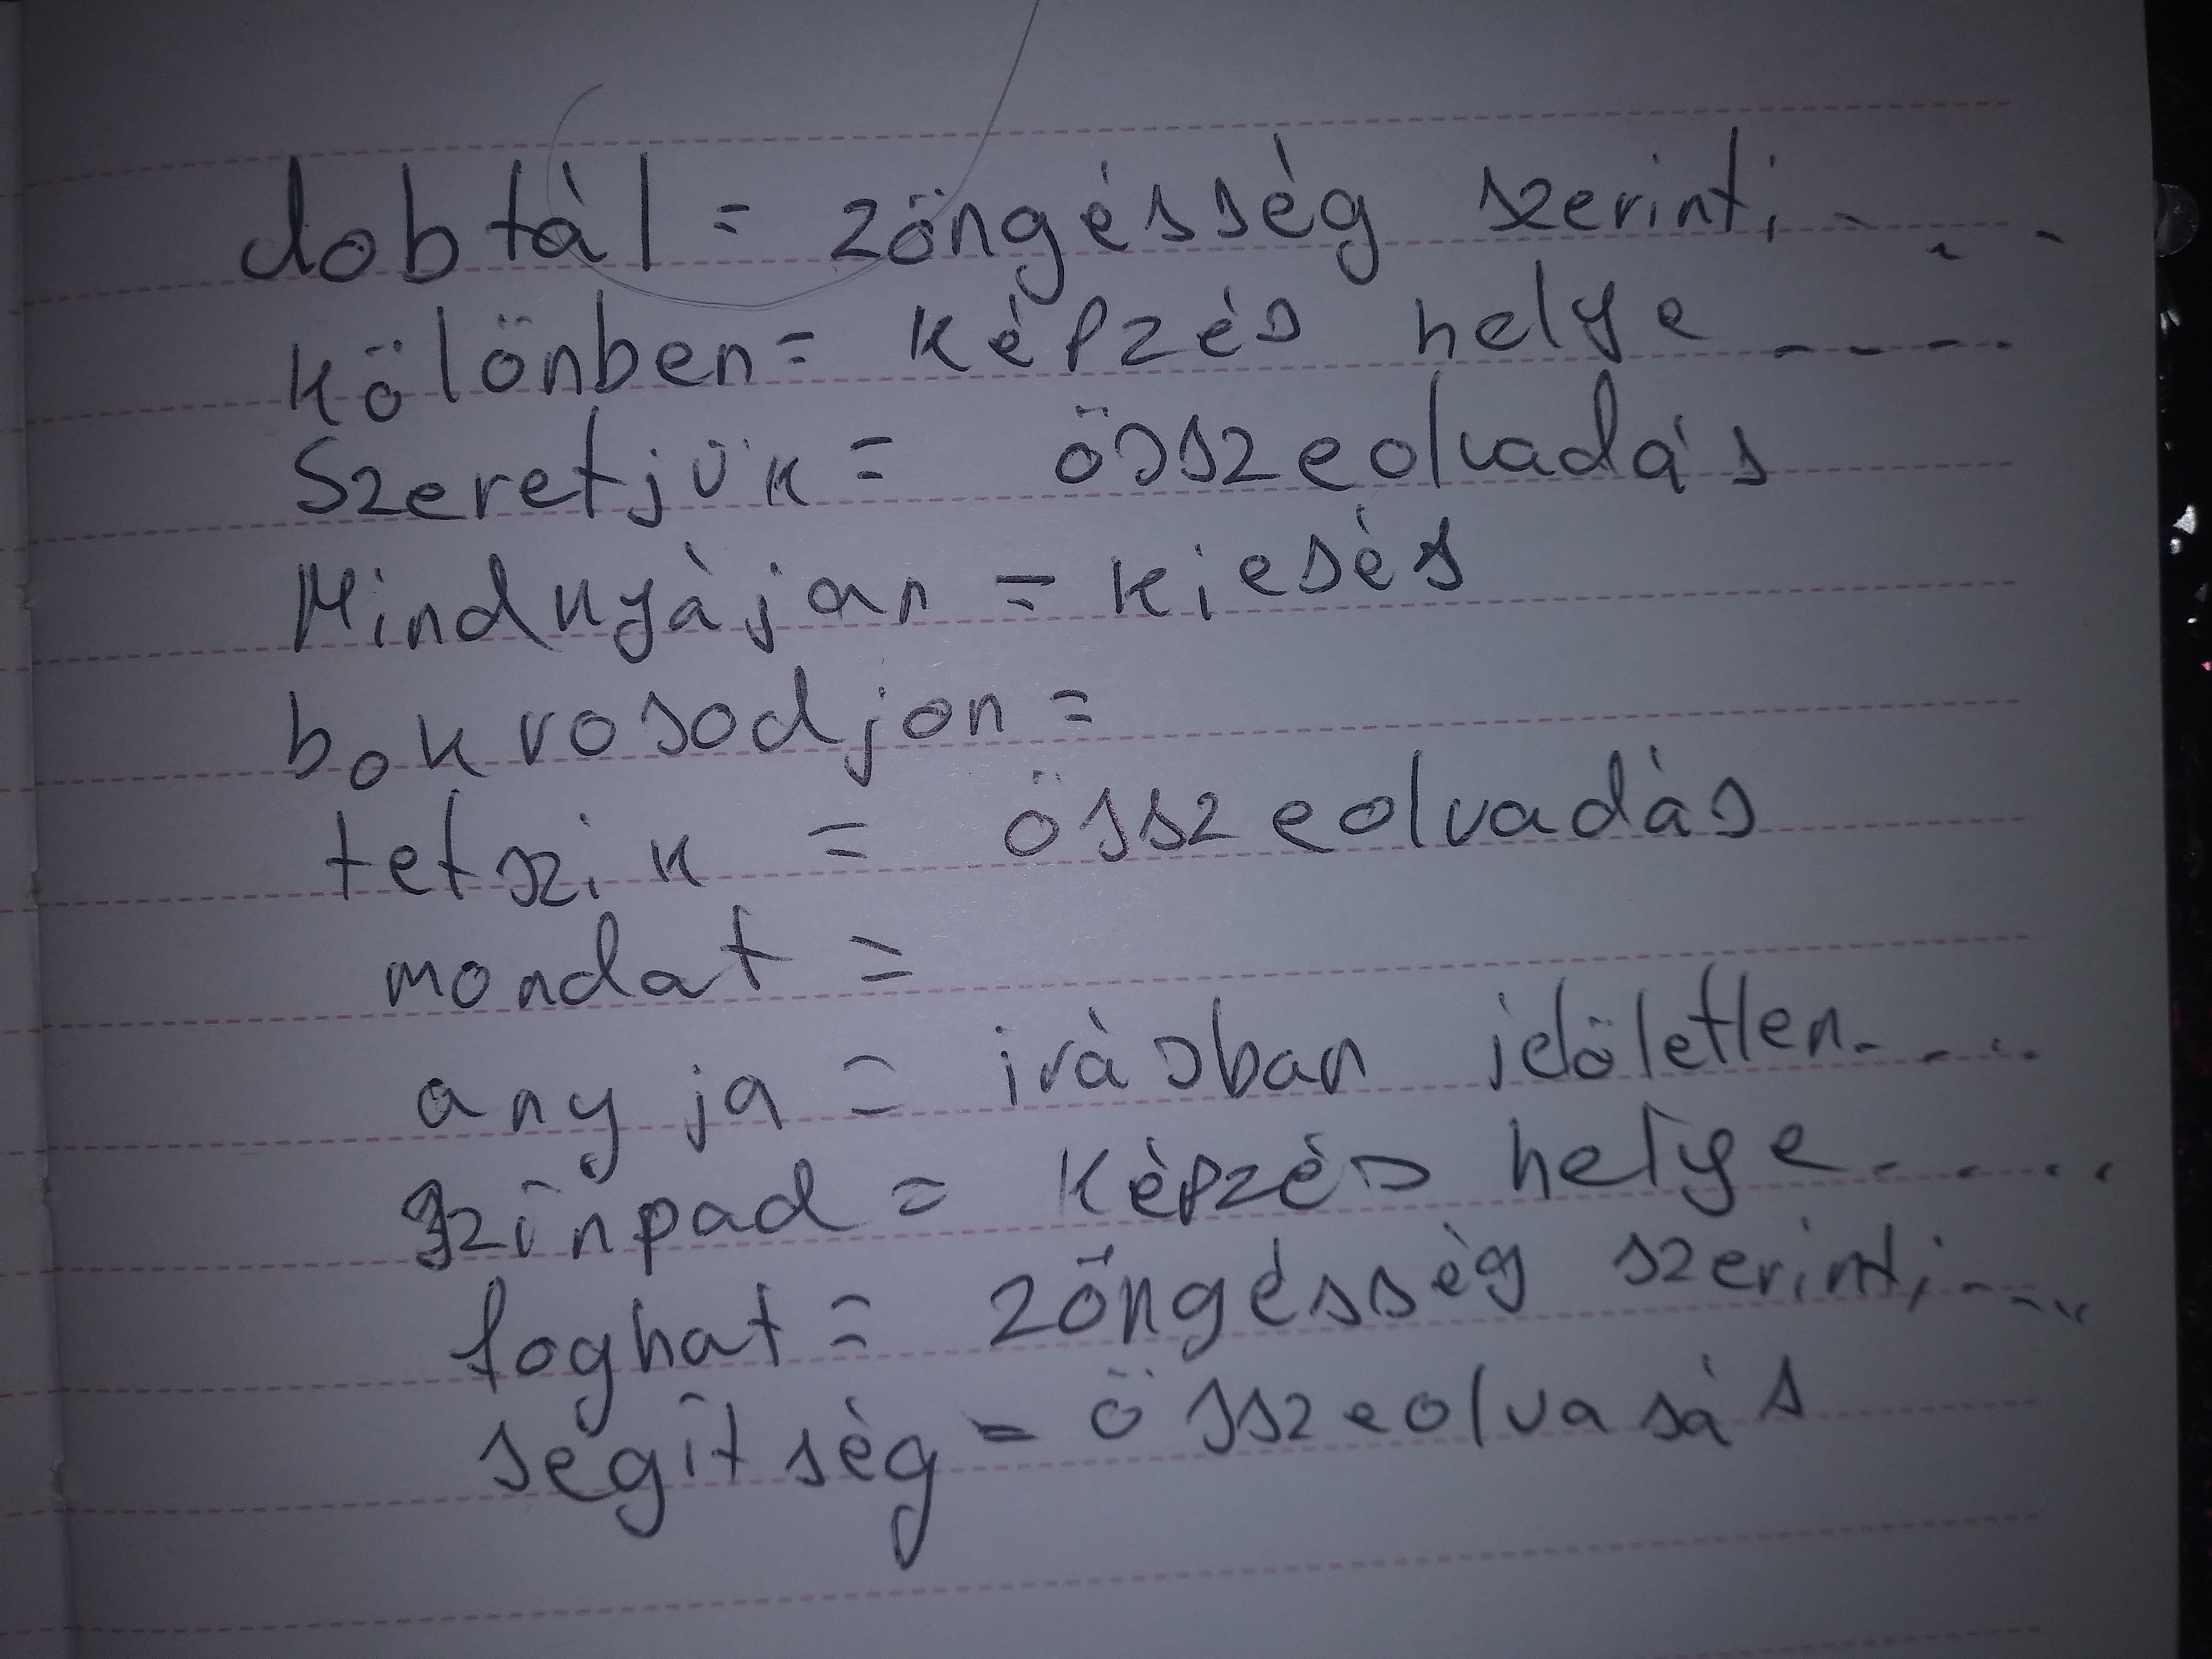 dobtál = zöngésség szerinti - - -
különben = képzés helye - - - -
Szeretjük = összeolvadás
Mindnyájan = kiesés
bokrosodjon =
tetszik = összeolvadás
mondat =
anyja = írásban jelöletlen - - - -
színpad = képzés helye - - - -
foghat = zöngésség szerinti - - - -
segítség = összeolvasás